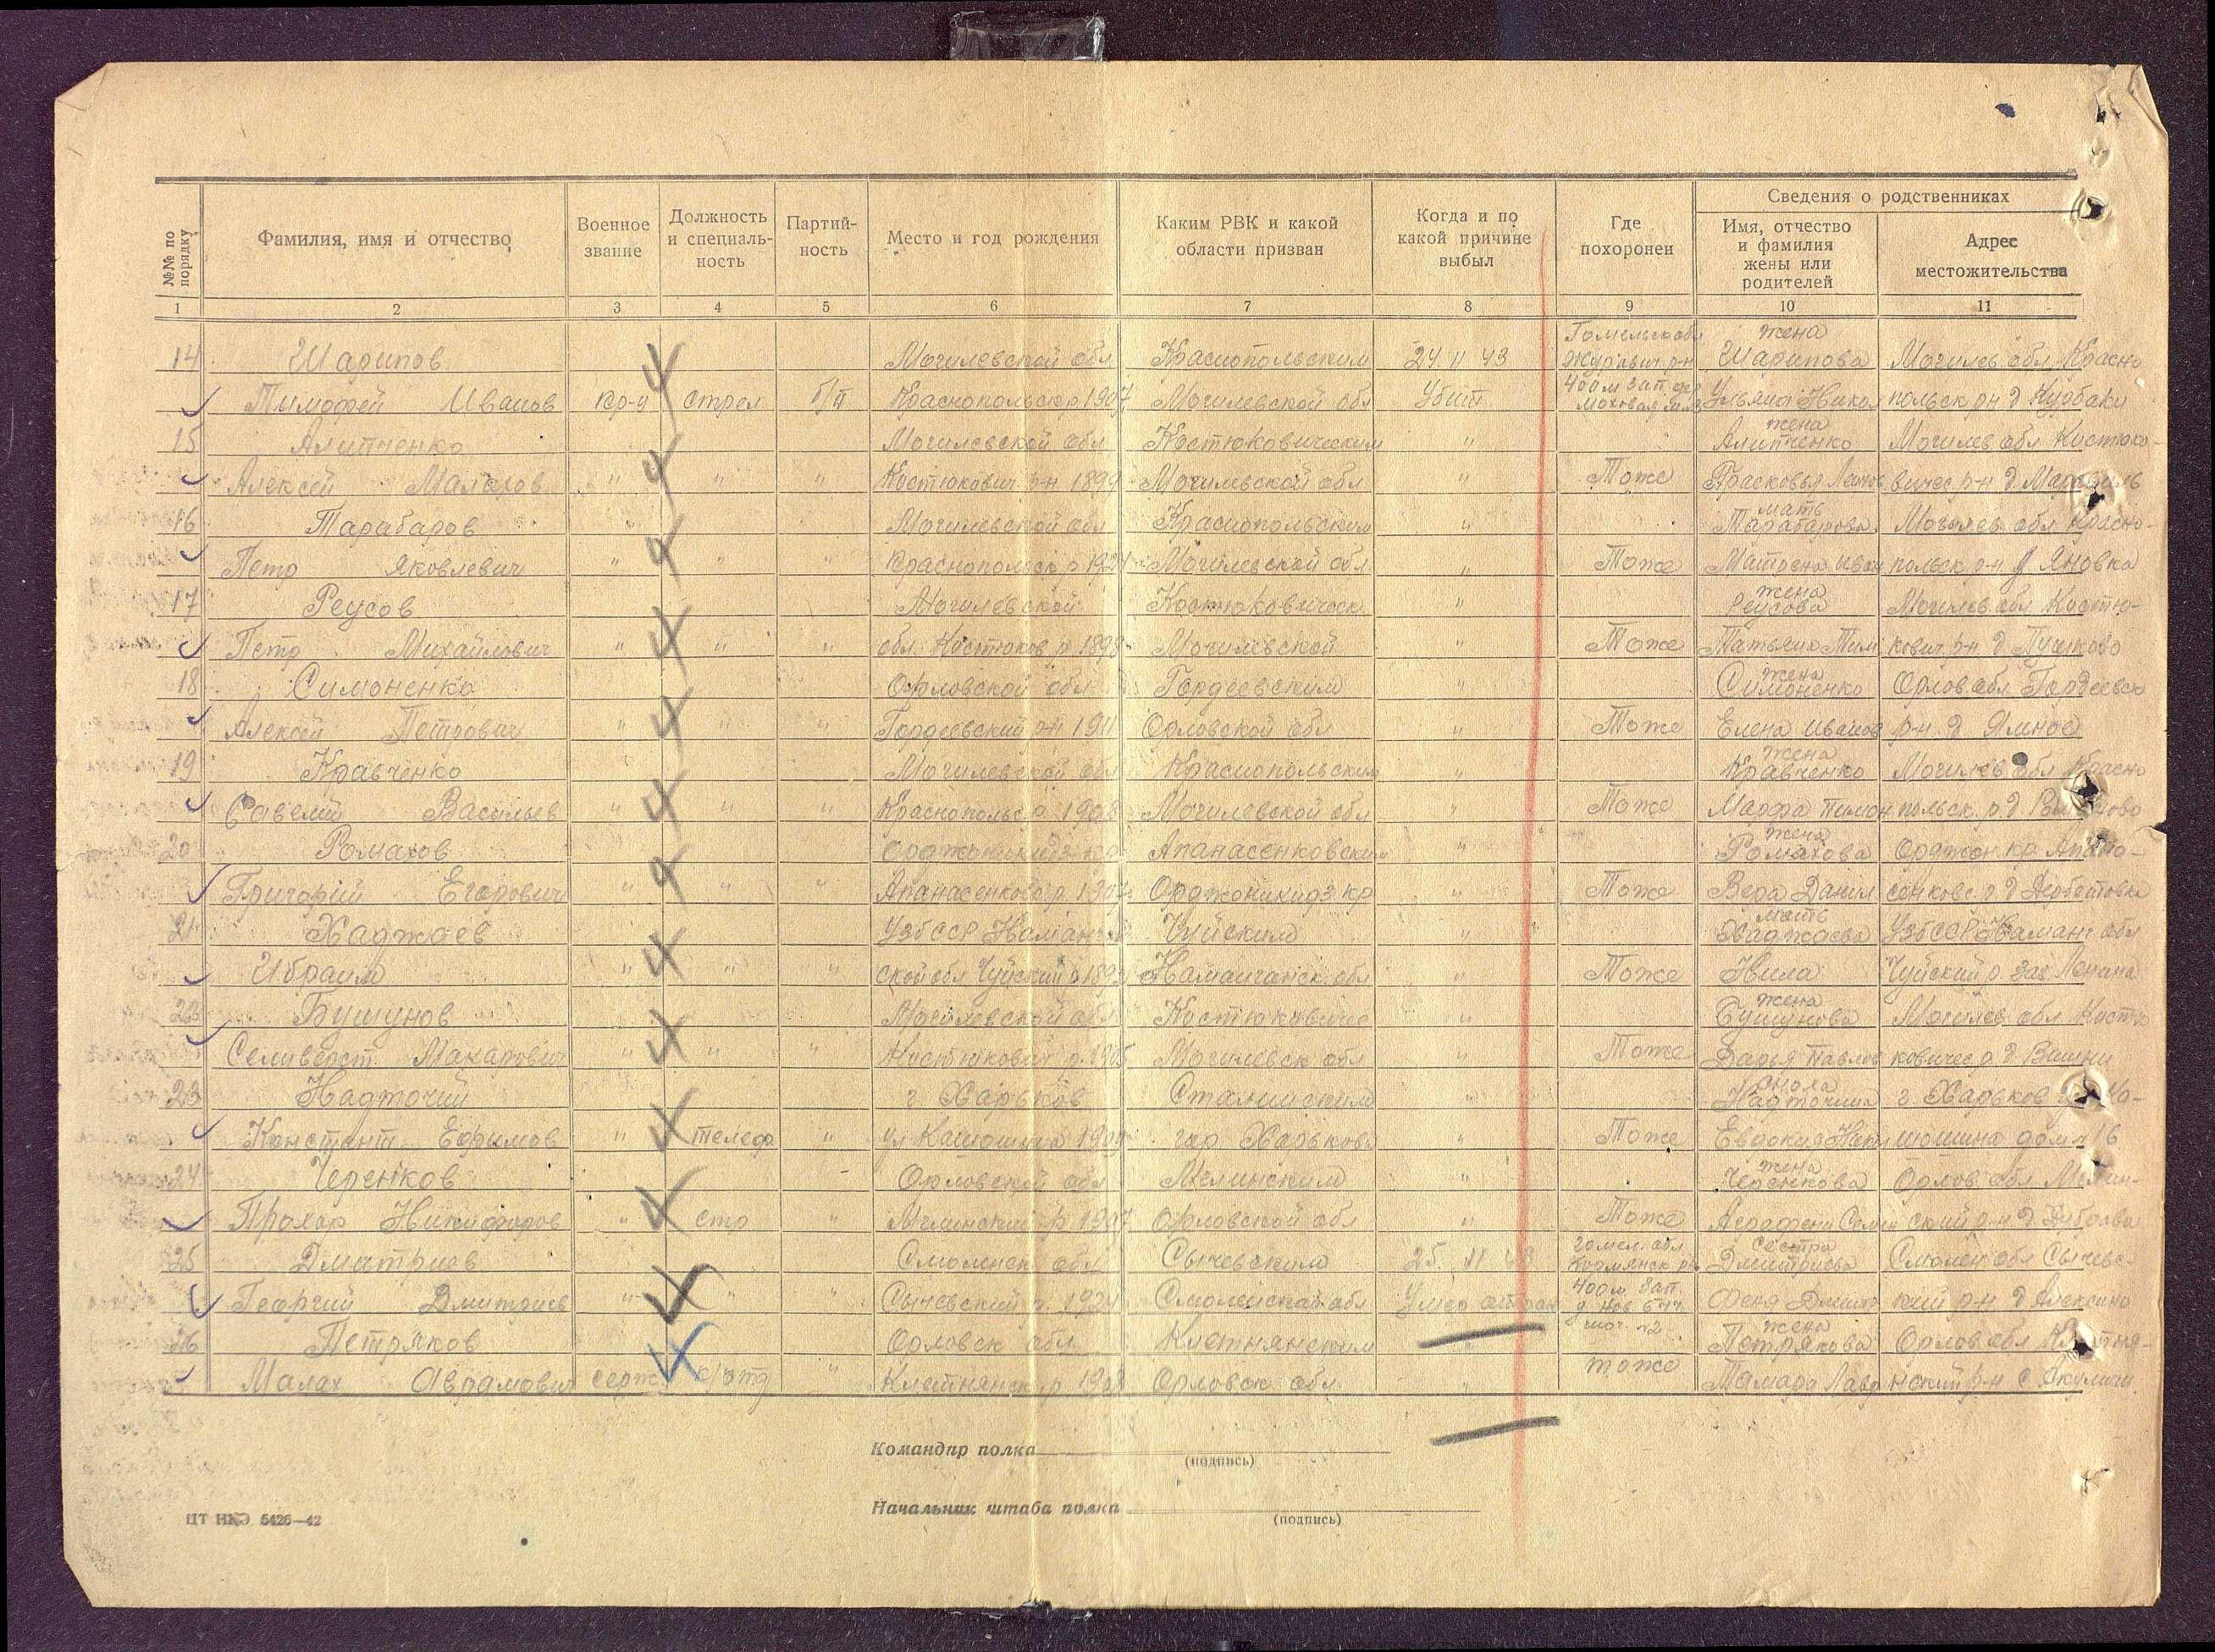 №№ по порядку
Фамилия, имя и отчество
Военное звание
Должность и специаль-ность
Партий-ность
Место и год рождения
Каким РВК и какой области призван
Когда и по какой причине выбыл
Где похоронен
Сведения о родственниках
Имя, отчество и фамилия жены или родителей
Адрес местожительства
1 2 3 4 5 6 7 8 9 10 11
Гомельск обл жена
14 Шарипов Могилевской обл Краснопольским 24 11 43 Журавич р-н Шарипова Могилев обл Красно
Тимофей Иванов кр-ц стрел б/п Краснопольск р 1907 Могилевской обл Убит 400 м зап Ульяна Никол польск р-н д Курбаки
жена
15 Алипченко Могилевской обл Костюковическим " Алипченко Могилев обл Костюко-
Алексей " " " Костюкович р-н 1899 Могилевской обл " Тоже Прасковья вичес р-н д
мать
16 Тарабаров Могилевской обл Краснопольским " Тарабарова Могилев обл Красно-
Петр Яковлевич " " " Краснопольск р 1924 Могилевской обл " Тоже Матрена Иван польск р-н д Яновка
жена
17 Реусов Могилевской Костюковическ " Реусова Могилев обл Костю-
Петр Михайлович " " " обл Костюков р 1898 Могилевской " Тоже Татьяна Тим кович р-н д Пушково
жена
18 Симоненко Орловской обл Гордеевским " Симоненко Орлов обл Гордеевск
Алексей Петрович " " " Гордеевский р-н 1911 Орловской обл " Тоже Елена Иванов р-н д Ямное
жена
19 Кравченко Могилевской обл Краснопольским " Кравченко Могилев обл Красно
Савелий Васильев " " " Краснопольс р 1908 Могилевской обл " Тоже Марфа Тимон польск р д
жена
20 Ромахов Орджоникидз кр Апанасенковским " Ромахова Орджон кр Апана-
Григорий Егорович " " " Апанасенковс р 1907 Орджоникидз кр " Тоже Вера Данил сенковс р д Дербетовка
мать
21 Хаджаев УзбССР Наманган Чуйским " Хаджаева УзбССР Наманг обл
Ибраим " " " ской обл Чуйский р Наманганск обл " Тоже Чуйский р Ленина
жена
22 Бушунов Могилевской обл Костюковичес " Бушунова Могилев обл Костю
Селиверст Макарович " " " Костюкович р 1905 Могилевск обл " Тоже Дарья Павлов ковичес р д Вишни
23 Надточий г Харьков Сталинским " г Харьков
Констант Ефимов " телеф " ул 1909 гор Харькова " Тоже Евдокия дом 16
жена
24 Черенков Орловской обл Мглинским " Черенкова Орлов обл Мглин-
Прохор Никифоров " стр " Мглинский р 1907 Орловской обл " Тоже Аграфена Семен ский р-н д Дуброва
гомел обл сестра
25 Дмитриев Смоленск обл Сычевским 25 11 43 Кормянск р-н Дмитриева Смолен обл Сычевс-
Георгий Дмитриев " " " Сычевский р. 1924 Смоленской обл Умер от ран 400 м зап. Феня Дмитр кий р-н д Алексино
жена
26 Петряков Орловск обл Клетнянским " Петрякова Орлов обл Клетня-
Малах Аврамович серж к/отд " Клетнянск р 1908 Орловск обл " тоже Тамара Лавр нский р-н с Акуличи
Командир полка
(подпись)
Начальник штаба полка
(подпись)
ЦТ НКЭ 5426—42